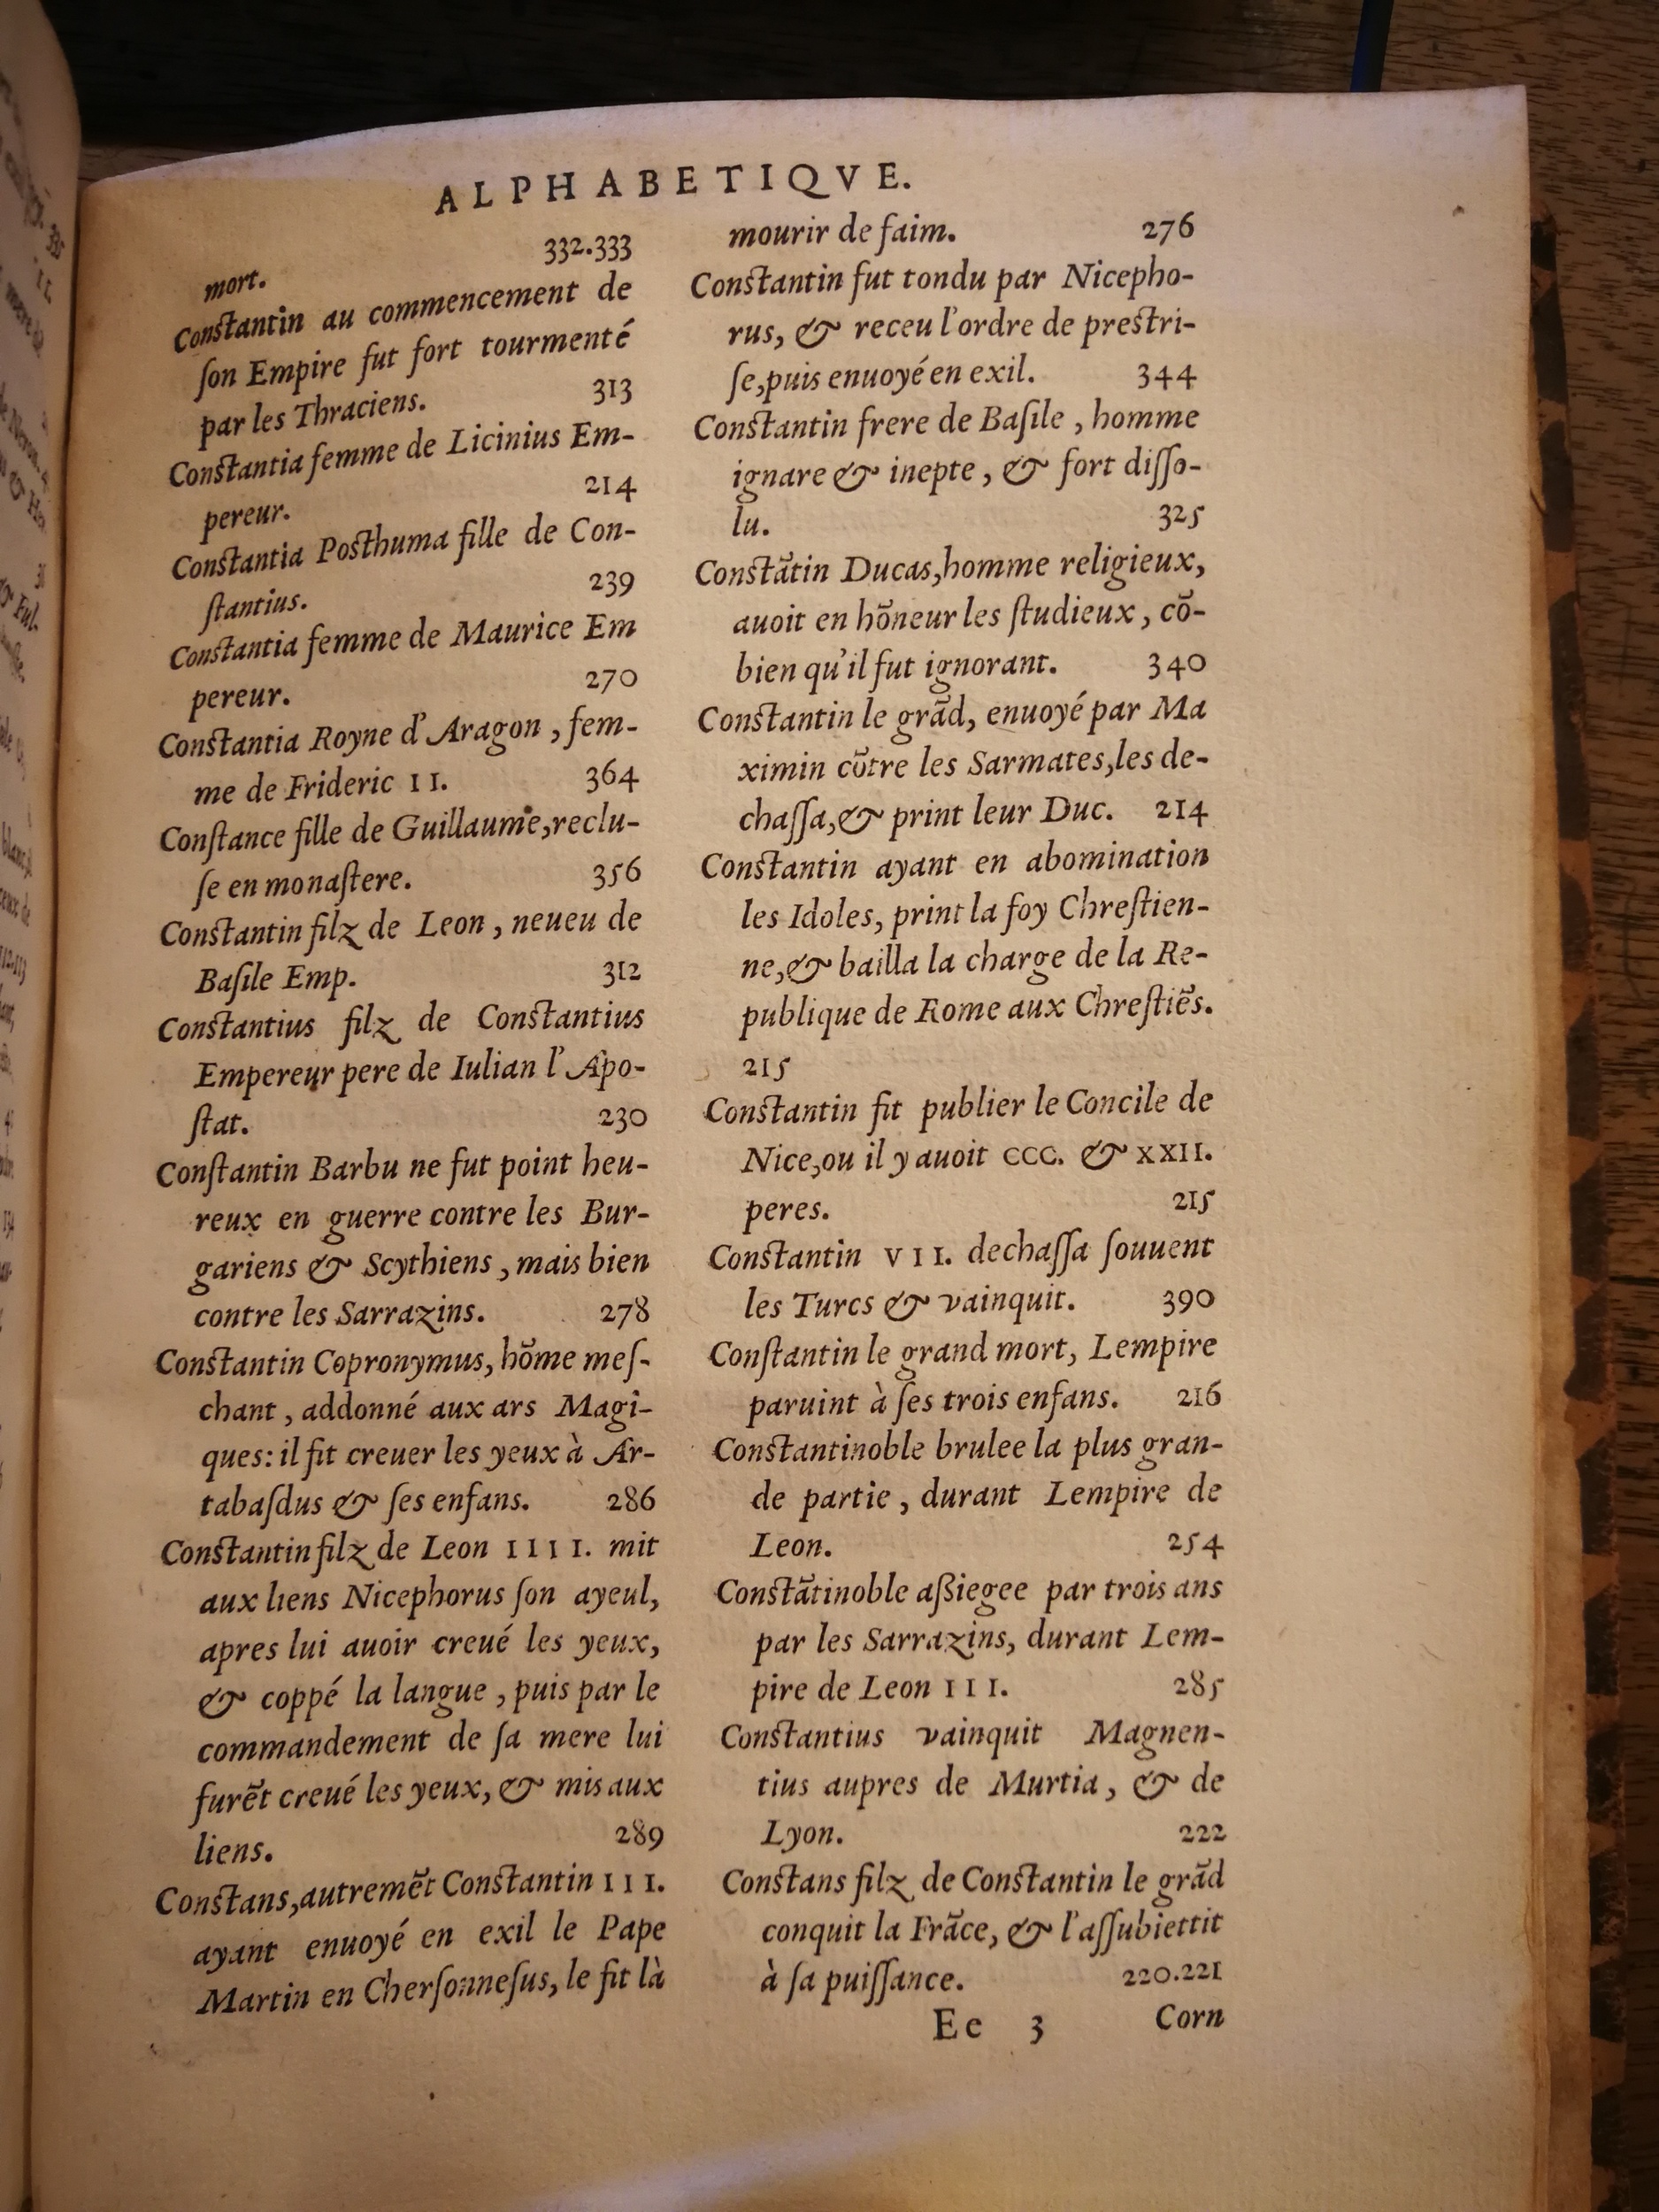 ALPHABETIQVE.
mort. 332.333
Conſtantin au commencement de
ſon Empire fut fort tourmenté
par les Thraciens. 313
Conſtantia femme de Licinius Em-
pereur. 214
Conſtantia Poſthuma fille de Con-
ſtantius. 239
Conſtantia femme de Maurice Em
pereur. 270
Conſtantia Royne d'Aragon, fem-
me de Frideric II. 364
Conſtance fille de Guillaume, reclu-
ſe en monaſtere. 356
Conſtantin filz de Leon, neueu de
Baſile Emp. 312
Conſtantius filz de Conſtantius
Empereur pere de Iulian l'Apo-
ſtat. 230
Conſtantin Barbu ne fut point heu-
reux en guerre contre les Bur-
gariens & Scythiens, mais bien
contre les Sarrazins. 278
Conſtantin Copronymus, hõme meſ-
chant, addonné aux ars Magi-
ques: il fit creuer les yeux à Ar-
tabaſdus & ſes enfans. 286
Conſtantin filz de Leon IIII. mit
aux liens Nicephorus ſon ayeul,
apres lui auoir creué les yeux,
& coppé la langue, puis par le
commandement de ſa mere lui
furẽt creué les yeux, & mis aux
liens. 289
Conſtans, autremẽt Conſtantin III.
ayant enuoyé en exil le Pape
Martin en Cherſonneſus, le fit là
mourir de faim. 276
Conſtantin fut tondu par Nicepho-
rus, & receu l'ordre de preſtri-
ſe, puis enuoyé en exil. 344
Conſtantin frere de Baſile, homme
ignare & inepte, & fort diſſo-
lu. 325
Conſtãtin Ducas, homme religieux,
auoit en hõneur les ſtudieux, cõ-
bien qu'il fut ignorant. 340
Conſtantin le grãd, enuoyé par Ma
ximin cõtre les Sarmates, les de-
chaſſa, & print leur Duc. 214
Conſtantin ayant en abomination
les Idoles, print la foy Chreſtien-
ne, & bailla la charge de la Re-
publique de Rome aux Chreſtiẽs.
215
Conſtantin fit publier le Concile de
Nice, ou il y auoit CCC. & XXII.
peres. 215
Conſtantin VII. dechaſſa ſouuent
les Turcs & vainquit. 390
Conſtantin le grand mort, Lempire
paruint à ſes trois enfans. 216
Conſtantinoble brulee la plus gran-
de partie, durant Lempire de
Leon. 254
Conſtãtinoble aßiegee par trois ans
par les Sarrazins, durant Lem-
pire de Leon III. 285
Conſtantius vainquit Magnen-
tius aupres de Murtia, & de
Lyon. 222
Conſtans filz de Conſtantin le grãd
conquit la Frãce, & l'aſſubiettit
à ſa puiſſance. 220.221
Ee 3 Corn